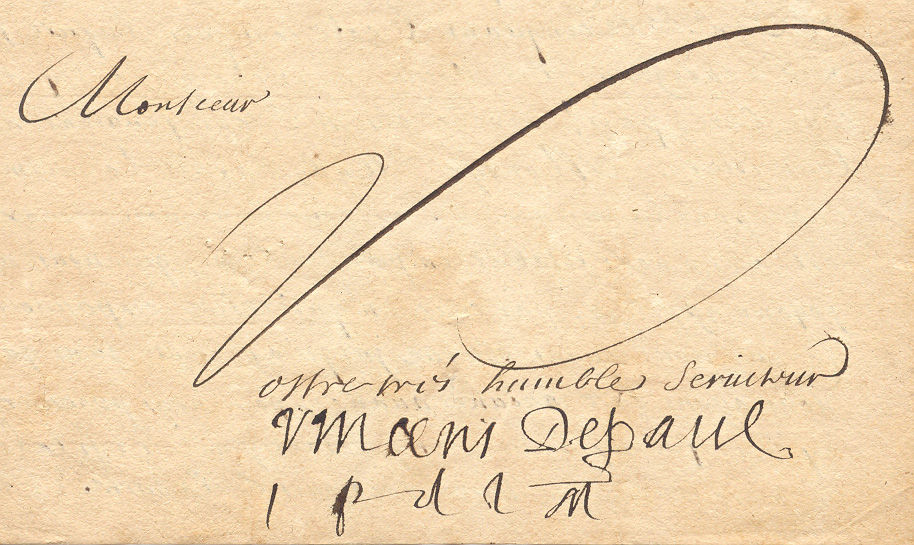 Monsieur
Vostre tres humble seruiteur
Vincent Depaul
i p d l M